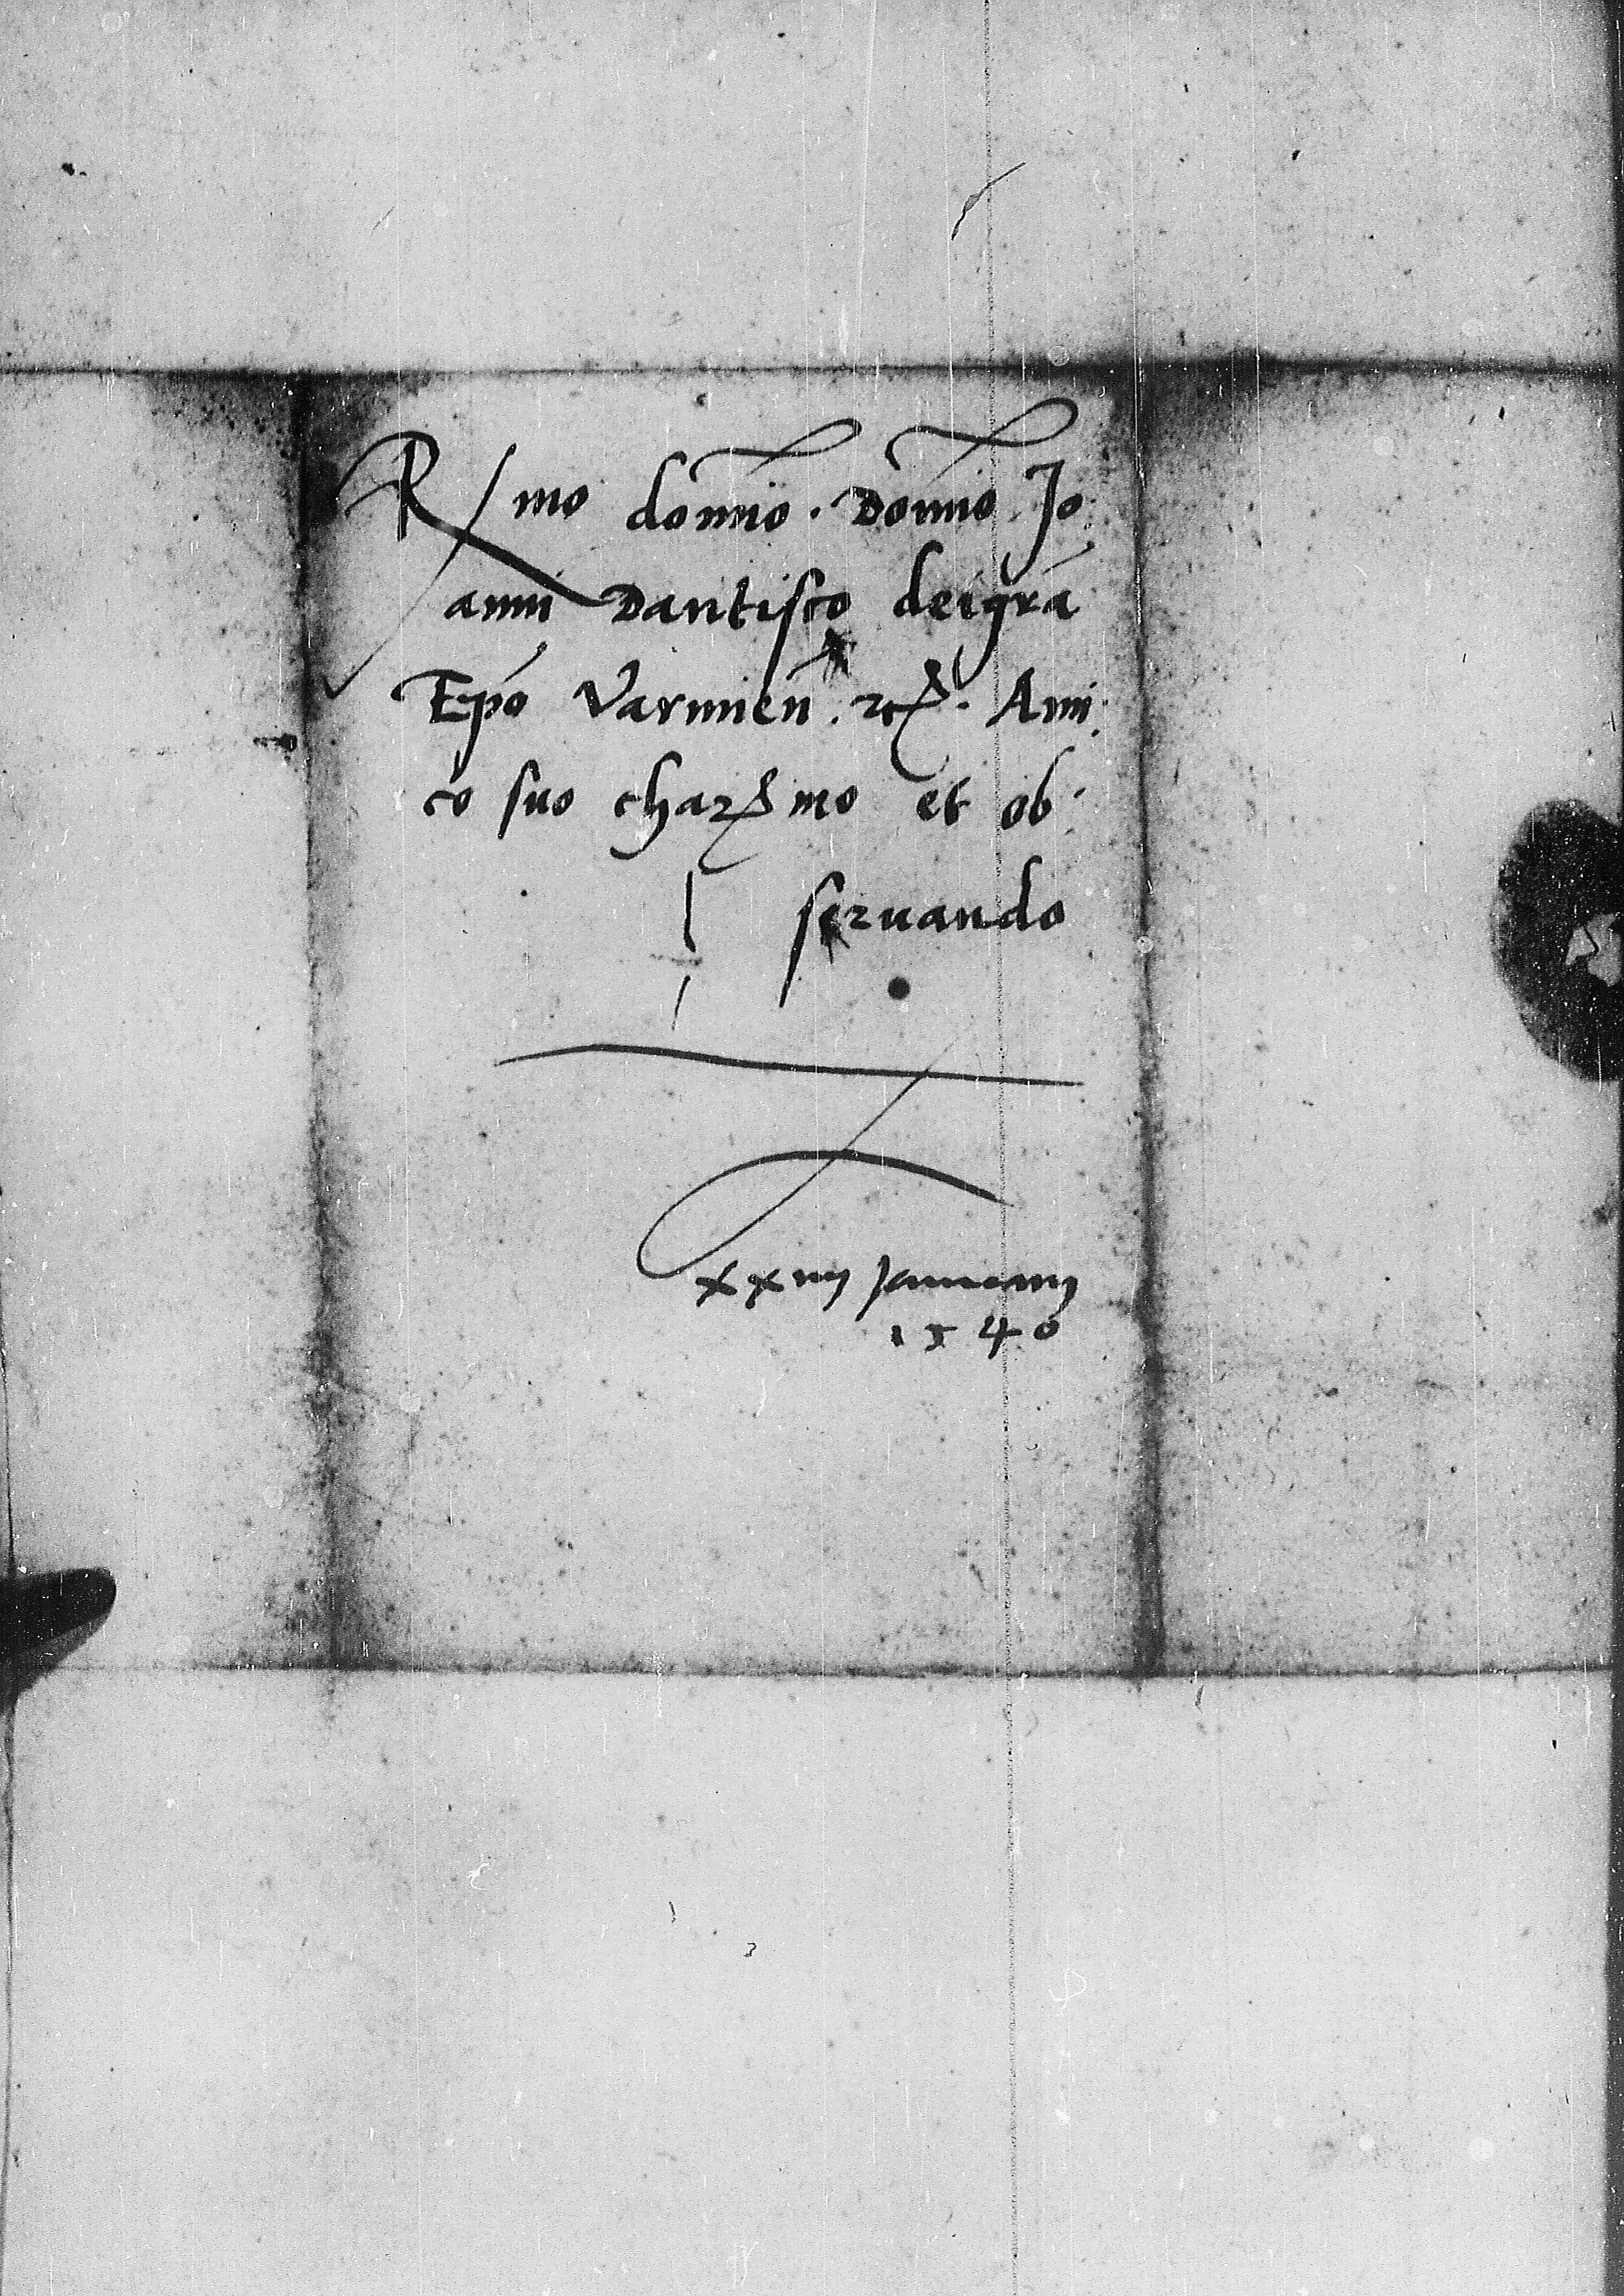 Rmo domio. Domio Jo
anni Dantisco dei gra
Epo Varmien. etc. Ami
co suo charmo et ob
seruando
Januarij
1540